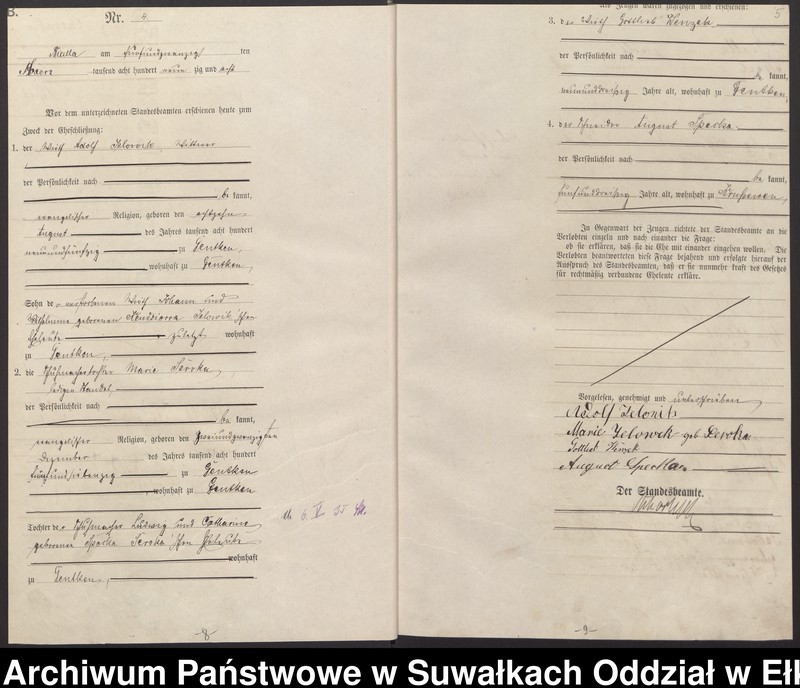 B.
Nr. 4.
am fünfundzwanzig ten
Maerz tausend acht hundert neun zig und acht
Vor dem unterzeichneten Standesbeamten erschienen heute zum
Zweck der Eheschließung:
1. der Wirth Adolf Wittwer
der Persönlichkeit nach
be kannt,
evangelischer Religion, geboren den achtzehn
August des Jahres tausend acht hundert
neunundfünfzig zu Gentken
wohnhaft zu Gentken,
Sohn des verstorbenen Wirth Johann und
Wilhelmine geborenen
Eheleute zuletzt wohnhaft
zu Gentken,
2. die Schuhmachertochter Marie
ledigen Standes,
der Persönlichkeit nach
be kannt,
evangelischer Religion, geboren den zweiundzwanzigsten
Dezember des Jahres tausend acht hundert
fünfundsiebenzig zu Gentken
wohnhaft zu Gentken
Tochter der Schuhmacher Ludwig und Catharine
geborenen Eheleute
wohnhaft
zu Gentken,
-8-
5
als Zeugen waren zugezogen und erschienen:
3. der Wirth Gottlieb
der Persönlichkeit nach
be kannt,
neununddreißig Jahre alt, wohnhaft zu Gentken,
4. der Schneider August Specka
der Persönlichkeit nach
be kannt,
fünfunddreißig Jahre alt, wohnhaft zu
In Gegenwart der Zeugen richtete der Standesbeamte an die
Verlobten einzeln und nach einander die Frage:
ob sie erklären, daß sie die Ehe mit einander eingehen wollen. Die
Verlobten beantworteten diese Frage bejahend und erfolgte hierauf der
Ausspruch des Standesbeamten, daß er sie nunmehr kraft des Gesetzes
für rechtmäßig verbundene Eheleute erkläre.
Vorgelesen, genehmigt und unterschrieben
Adolf
Marie geb
Gottlieb
August Specka
Der Standesbeamte.
-9-
Archiwum Państwowe w Suwałkach Oddział w Ełk